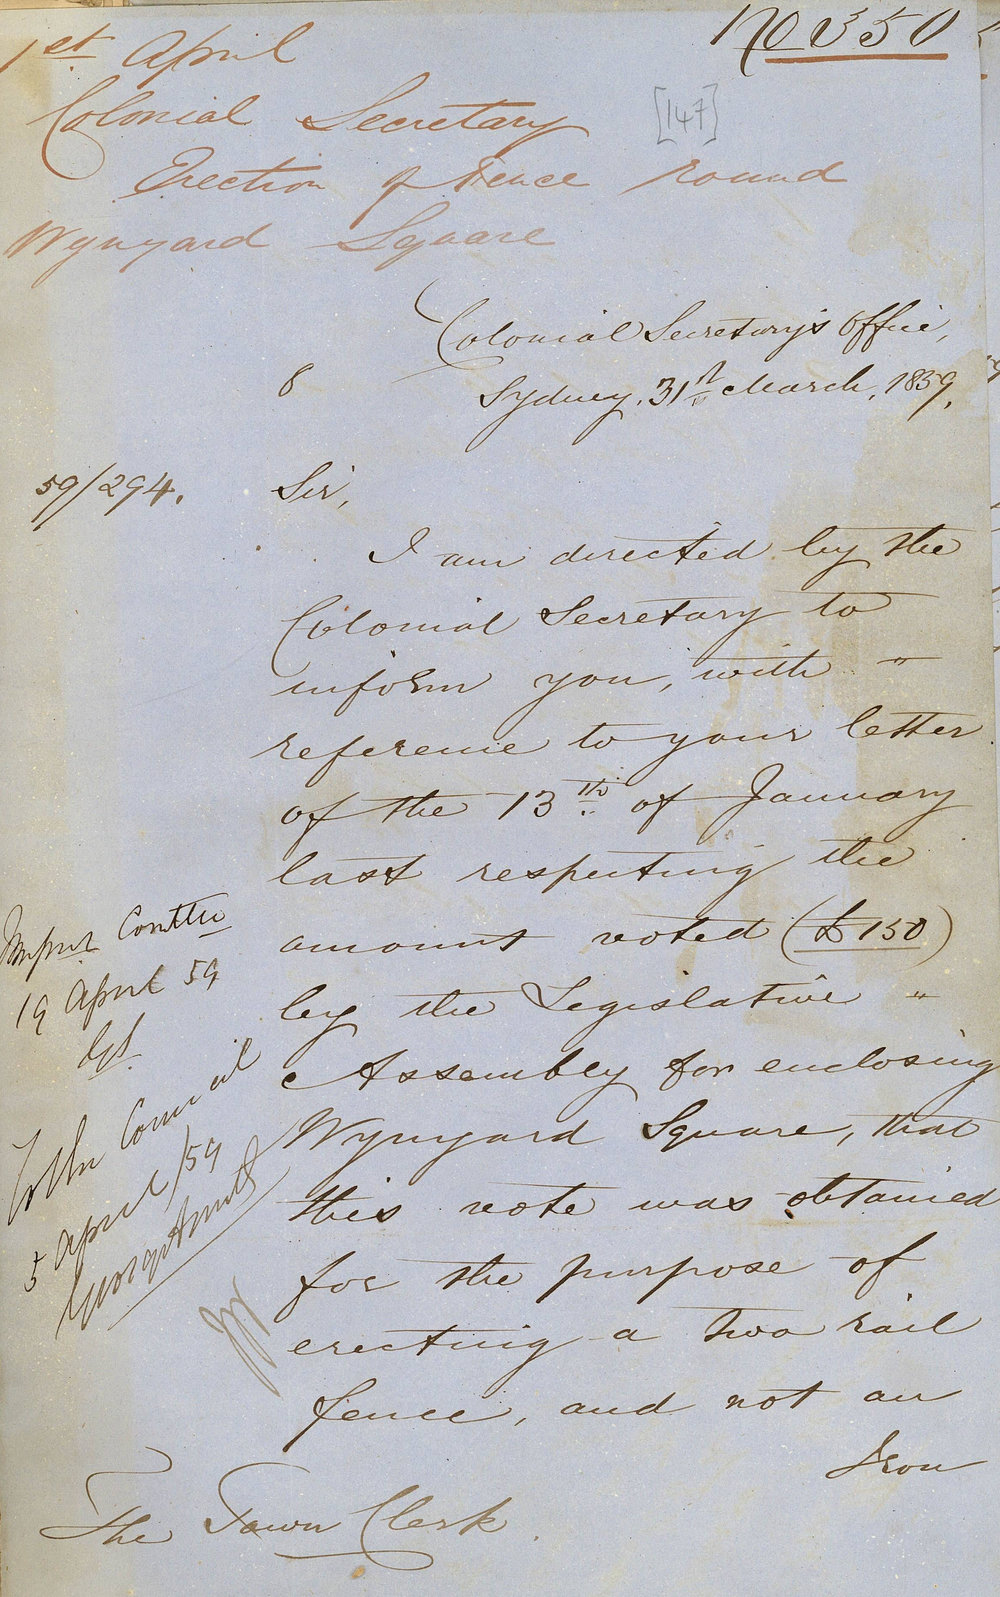 No 350
1st April
[147]
Colonial Secretary
Erection of Fence round
Wynyard Square
Colonial Secretary's Office,
8
Sydney, 31st March, 1859.
59/294.
Sir,
I am directed by the
Colonial Secretary to
inform you, with "
reference to your letter
of the 13th of January
last respecting the
amount voted (£150)
by the Legislative "
Assembly for enclosing
Wynyard Square, that
this vote was obtained
for the purpose of
erecting a two rail
fence, and not an
Iron
The Town Clerk.
Impvt Comttee
19 April 59
The Council
5 April/59